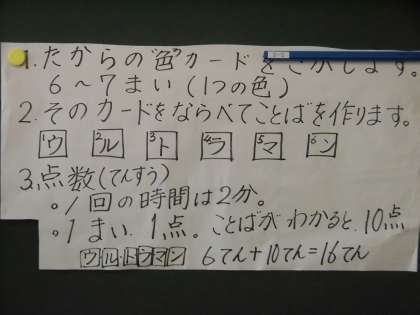 1. たからの"色"カードをさがします。
6～7まい(1つの色)
2. そのカードをならべてことばを作ります。
1ウ 2ル 3ト 4ラ 5マ 6ン
3. 点数(てんすう)
。1回の時間は2分。
。1まい. 1点。ことばがわかると. 10点
ウルトラマン 6てん+10てん=16てん